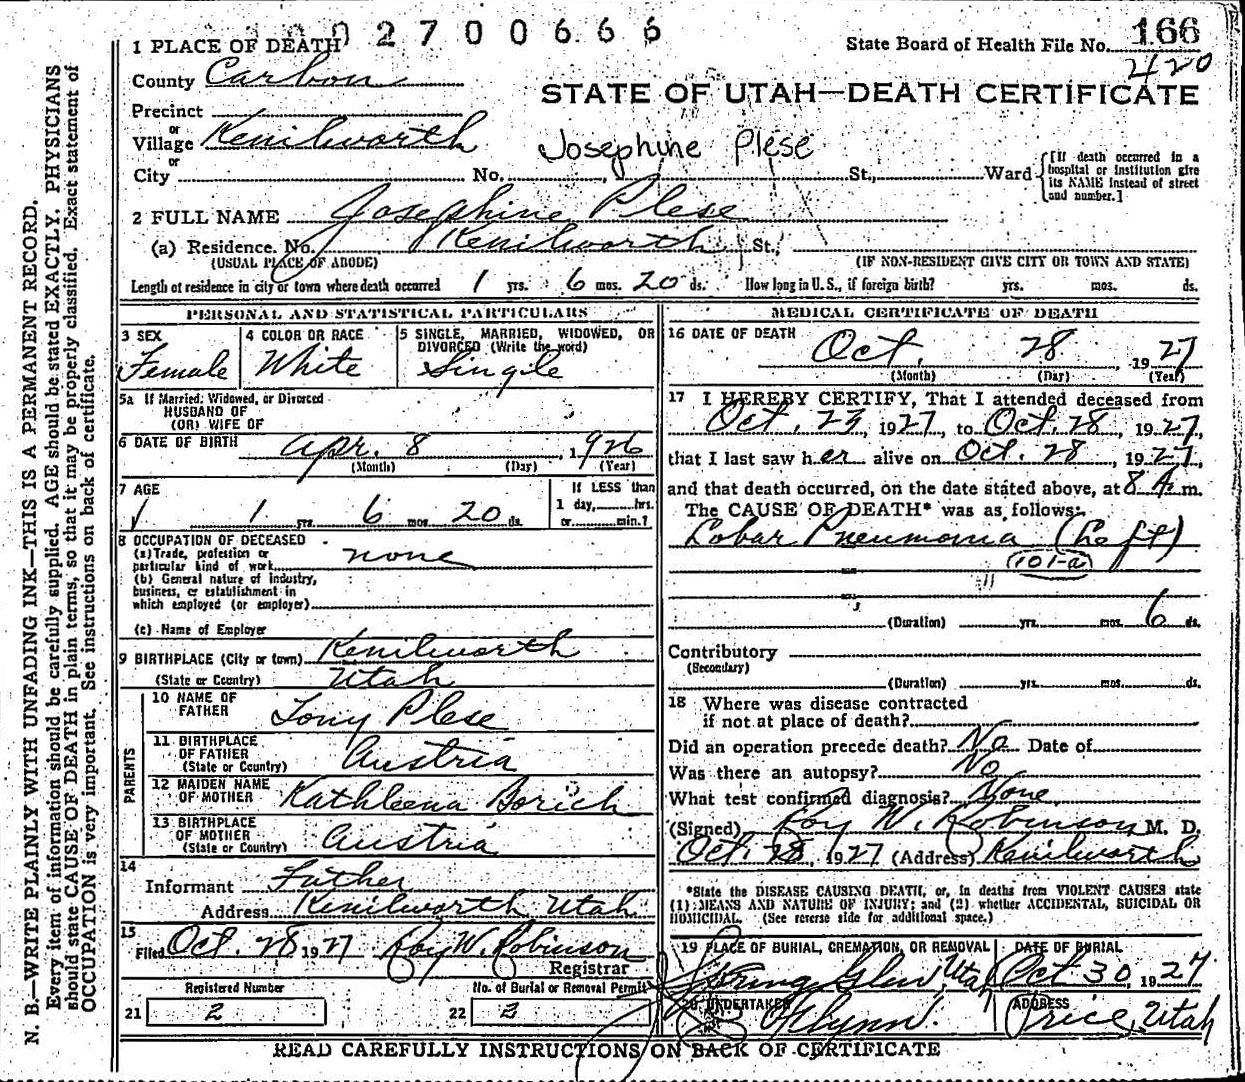 002700666
State Board of Health File No. 166
420
1 PLACE OF DEATH
County Carbon
STATE OF UTAH—DEATH CERTIFICATE
Precinct
or
Village Kenilworth
Josephine Plese
or
City No. , St., Ward [If death occurred in a hospital or institution give its NAME instead of street and number.]
2 FULL NAME Josephine Plese
(a) Residence. No. Kenilworth St.,
(USUAL PLACE OF ABODE) (IF NON-RESIDENT GIVE CITY OR TOWN AND STATE)
Length of residence in city or town where death occurred 1 yrs. 6 mos. 20 ds. How long in U. S., if foreign birth? yrs. mos. ds.
PERSONAL AND STATISTICAL PARTICULARS
3 SEX
Female
4 COLOR OR RACE
White
5 SINGLE, MARRIED, WIDOWED, OR
DIVORCED (Write the word)
Single
5a If Married, Widowed, or Divorced
HUSBAND OF
(OR) WIFE OF
6 DATE OF BIRTH Apr. 8, 1926
(Month) (Day) (Year)
7 AGE
1 yrs. 6 mos. 20 ds.
If LESS than
1 day, hrs.
or min.?
8 OCCUPATION OF DECEASED
(a) Trade, profession or
particular kind of work none
(b) General nature of industry,
business, or establishment in
which employed (or employer)
(c) Name of Employer
9 BIRTHPLACE (City or town) Kenilworth
(State or Country) Utah
PARENTS
10 NAME OF
FATHER Tony Plese
11 BIRTHPLACE
OF FATHER
(State or Country) Austria
12 MAIDEN NAME
OF MOTHER Kathleena Borich
13 BIRTHPLACE
OF MOTHER
(State or Country) Austria
14
Informant Father
Address Kenilworth Utah
15
Filed Oct. 28 1927 Roy W. Robinson
Registrar
Registered Number No. of Burial or Removal Permit
21 2 22 2
MEDICAL CERTIFICATE OF DEATH
16 DATE OF DEATH
Oct. 28 1927
(Month) (Day) (Year)
17 I HEREBY CERTIFY, That I attended deceased from
Oct. 23, 1927, to Oct. 28, 1927,
that I last saw her alive on Oct. 28, 1927,
and that death occurred, on the date stated above, at 8 A. m.
The CAUSE OF DEATH* was as follows:
Lobar Pneumonia (Left)
101-a
(Duration) yrs. mos. 6 ds.
Contributory
(Secondary)
(Duration) yrs. mos. ds.
18 Where was disease contracted
if not at place of death?
Did an operation precede death? No Date of
Was there an autopsy? No
What test confirmed diagnosis? None
(Signed) Roy W. Robinson M. D.
Oct. 28, 1927 (Address) Kenilworth
*State the DISEASE CAUSING DEATH, or, in deaths from VIOLENT CAUSES state
(1) MEANS AND NATURE OF INJURY; and (2) whether ACCIDENTAL, SUICIDAL OR
HOMICIDAL. (See reverse side for additional space.)
19 PLACE OF BURIAL, CREMATION, OR REMOVAL DATE OF BURIAL
Spring Glen, Utah Oct 30, 1927
20 UNDERTAKER ADDRESS
Flynn. Price, Utah
READ CAREFULLY INSTRUCTIONS ON BACK OF CERTIFICATE
N. B.—WRITE PLAINLY WITH UNFADING INK—THIS IS A PERMANENT RECORD.
Every item of information should be carefully supplied. AGE should be stated EXACTLY. PHYSICIANS
should state CAUSE OF DEATH in plain terms, so that it may be properly classified. Exact statement of
OCCUPATION is very important. See instructions on back of certificate.